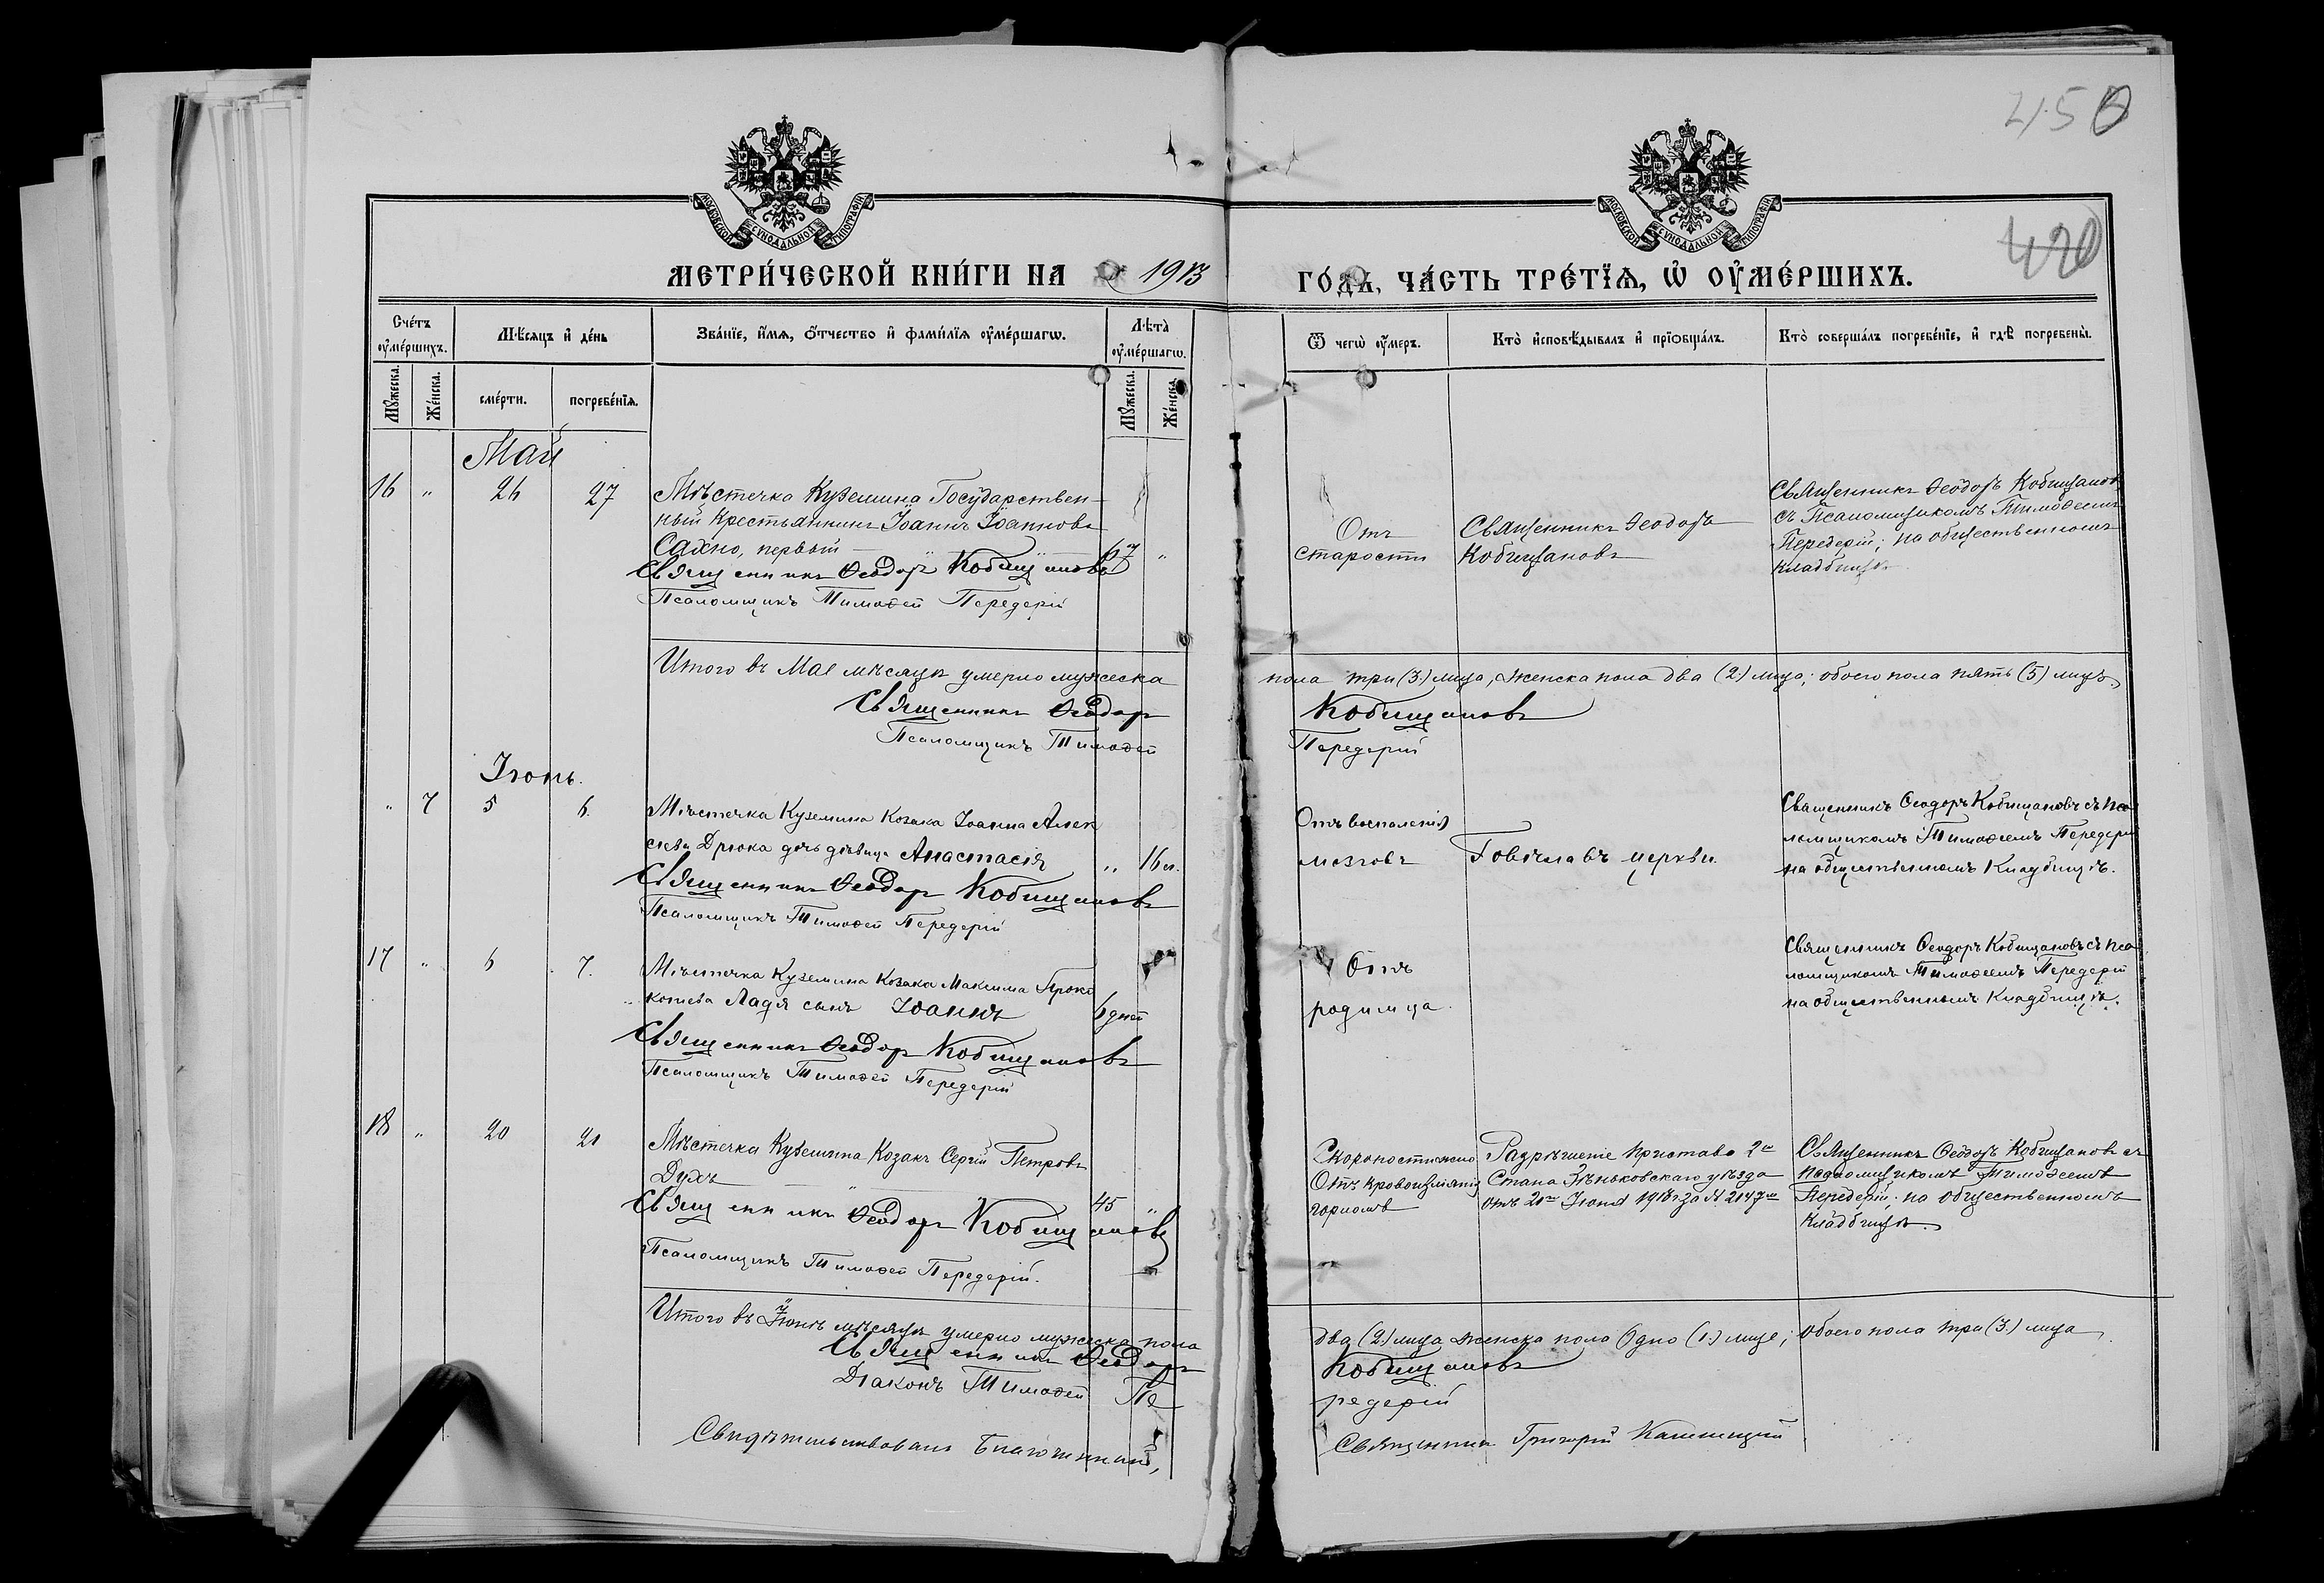 450
420
МОСКОВСКОЙ СѴНОДАЛЬНОЙ ТИПОГРАФІИ
МОСКОВСКОЙ СѴНОДАЛЬНОЙ ТИПОГРАФІИ
МЕТРИ́ЧЕСКОЙ КНИ́ГИ НА 1913
ГО́ДЪ, ЧА́СТЬ ТРЕ́ТЇѦ, Ѡ҆ ОУ҆МЕ́РШИХЪ.
Сче́тъ оу҆ме́ршихъ.
Мѣ́сяцъ и҆ де́нь
Зва́нїе, и҆́мѧ, ѻ҆́тчество и҆ фами́лїѧ оу҆ме́ршагѡ.
Лѣ́та оу҆ме́ршагѡ.
Ѿ чегѡ̀ оу҆́меръ.
Кто̀ и҆сповѣ́дывалъ и҆ прїѡбща́лъ.
Кто̀ соверша́лъ погребе́нїе, и҆ гдѣ̀ погребены̀.
Мꙋ́жеска.
Же́нска.
сме́рти.
погребе́нїѧ.
Мꙋ́жеска.
Же́нска.
Май
16 " 26 27
Мѣстечка Куземина Государствен-
ный крестьянинъ Іоаннъ Іоанновъ
Сахно, первый
67 "
Священникъ Ѳеодоръ Кобищановъ
Псаломщикъ Тимоѳей Передерій
Отъ
старости
Священникъ Ѳеодоръ
Кобищановъ
Священникъ Ѳеодоръ Кобищановъ
съ Псаломщикомъ Тимоѳеемъ
Передерій; на общественномъ
кладбищѣ
Итого въ Маѣ мѣсяцѣ умерло мужеска
пола три (3.) лица, женска пола два (2.) лица; обоего пола пять (5) лицъ.
Священникъ Ѳеодоръ
Кобищановъ
Псаломщикъ Тимоѳей
Передерій
Іюнь.
" 7 5 6.
Мѣстечка Куземина Козака Іоанна Алек
сіева Дрюка дочь дѣвица Анастасія
" 16 л.
Священникъ Ѳеодоръ Кобищановъ
Псаломщикъ Тимоѳей Передерій
Отъ воспаленія
мозговъ
Говѣла въ церкви.
Священникъ Ѳеодоръ Кобищановъ съ пса
ломщикомъ Тимоѳеемъ Передерій
на общественномъ Кладбищѣ.
17 " 6 7.
Мѣстечка Куземина Козака Максима Проко
копіева Ладя сынъ Іоаннъ
6 дней
Священникъ Ѳеодоръ Кобищановъ
Псаломщикъ Тимоѳей Передерій
Отъ
родимца.
Священникъ Ѳеодоръ Кобищановъ съ пса
ломщикомъ Тимоѳеемъ Передерій
на общественномъ Кладбищѣ.
18 " 20 21
Мѣстечка Куземина Козакъ Сергій Петровъ
Духъ
45 "
Священникъ Ѳеодоръ Кобищановъ
Псаломщикъ Тимоѳей Передерій.
Скоропостижно
Отъ кровоизліянія
горломъ
Разрѣшеніе Пристава 2го
Стана Зѣньковскаго уѣзда
отъ 21го Іюня 1913 г. за № 2147м
Священникъ Ѳеодоръ Кобищановъ съ
псаломщикомъ Тимоѳеемъ
Передерій. на общественномъ
Кладбищѣ.
Итого въ Іюнѣ мѣсяцѣ умерло мужеска пола
два (2.) лица женска пола Одно (1.) лице; обоего пола три (3.) лица.
Священникъ Ѳеодоръ
Кобищановъ
Діаконъ Тимоѳей Пе
редерій
Свидѣтельствовалъ Благочинный,
Священникъ Григорій Каменецкій